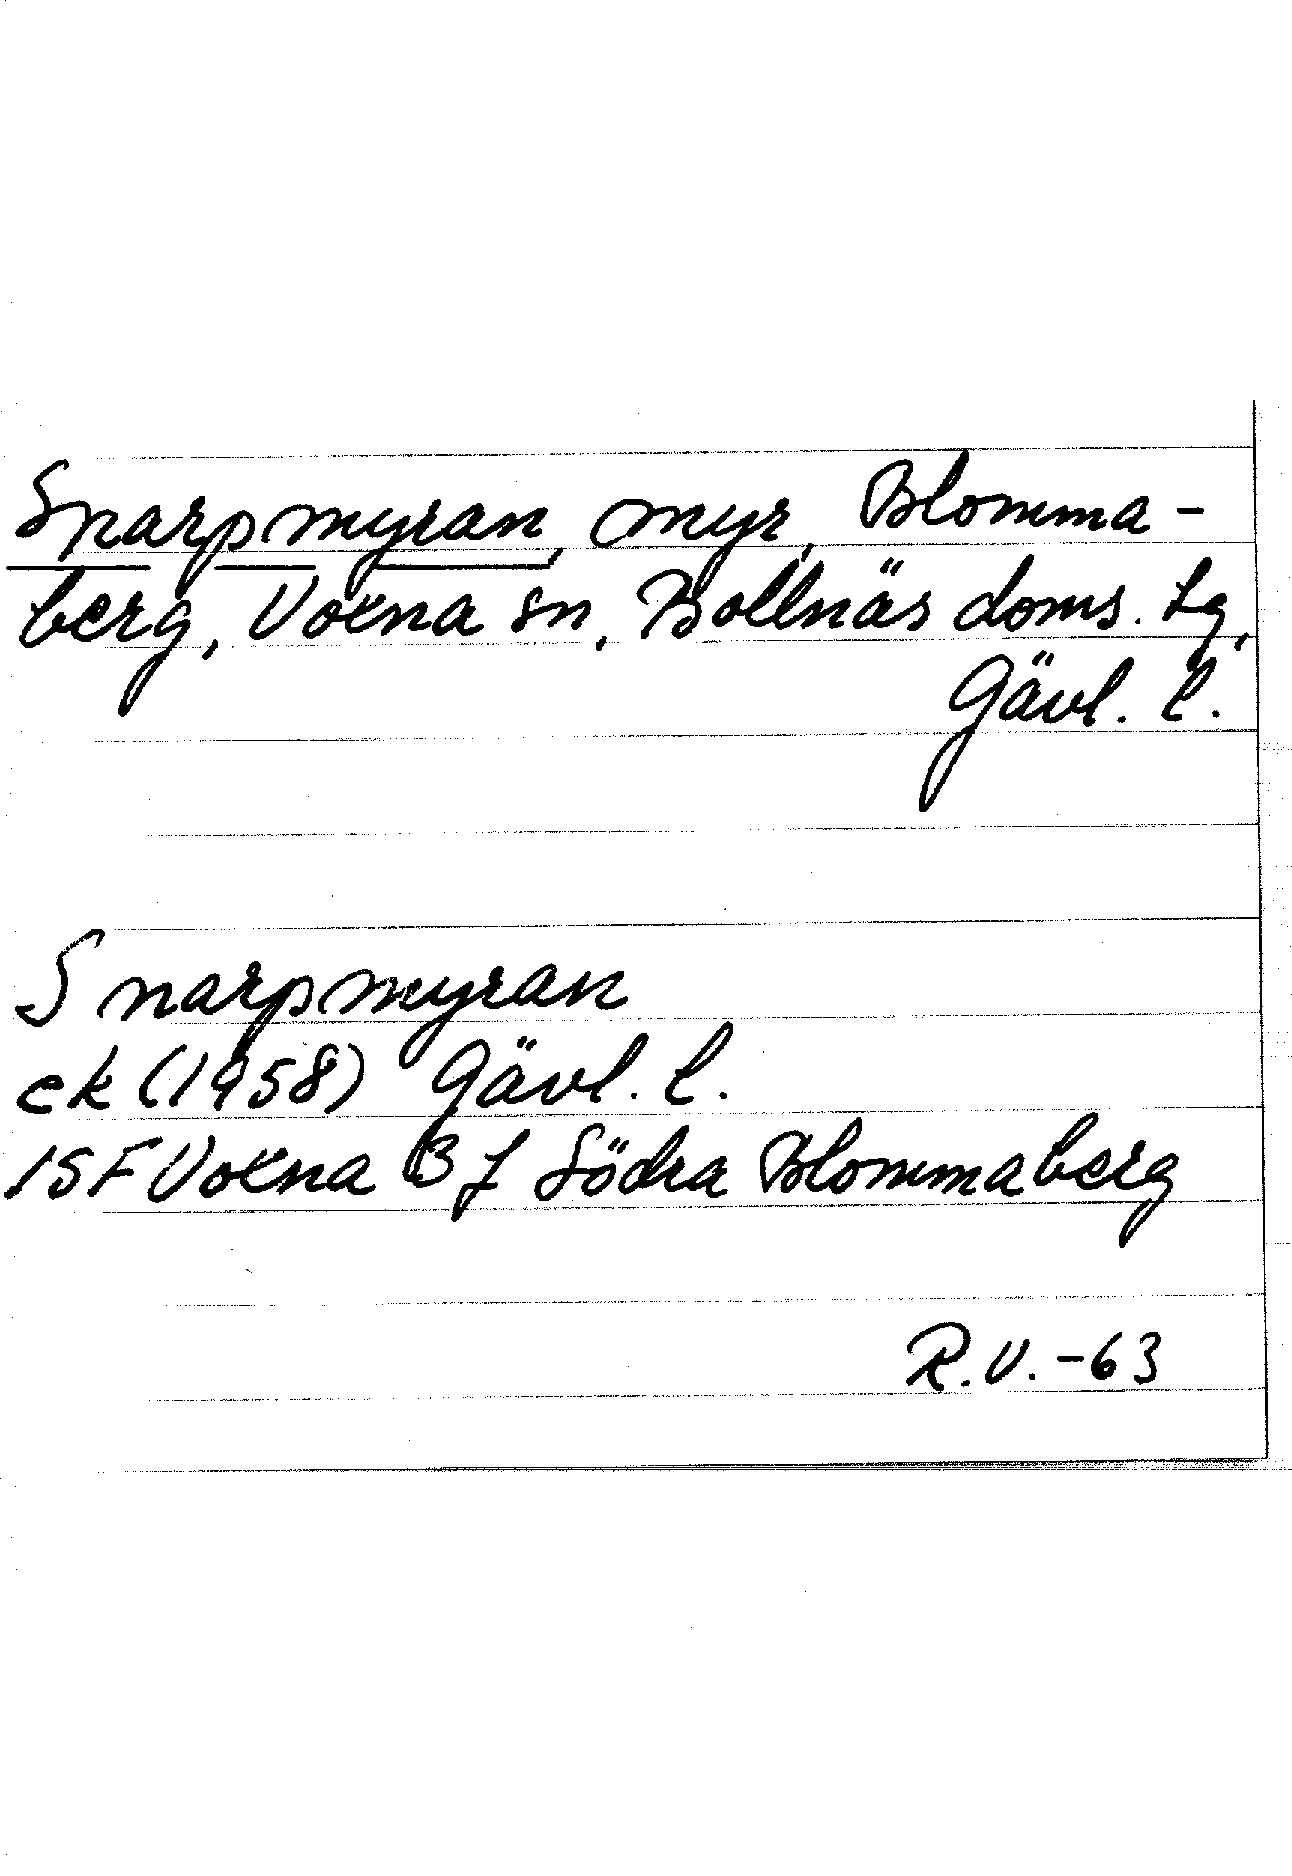 Snarpmyran, myr, Blomma-
berg, Voxna sn, Bollnäs doms. tg,
Gävl. l.
Snarpmyran
ek (1958) Gävl. l.
15F Voxna 3 f Södra Blommaberg
R.V. -63